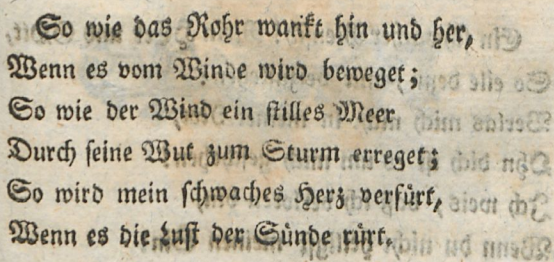 So wie das Rohr wankt hin und her,
Wenn es vom Winde wird beweget;
So wie der Wind ein stilles Meer
Durch seine Wut zum Sturm erreget;
So wird mein schwaches Herz verfürt,
Wenn es die Lust der Sünde rürt.